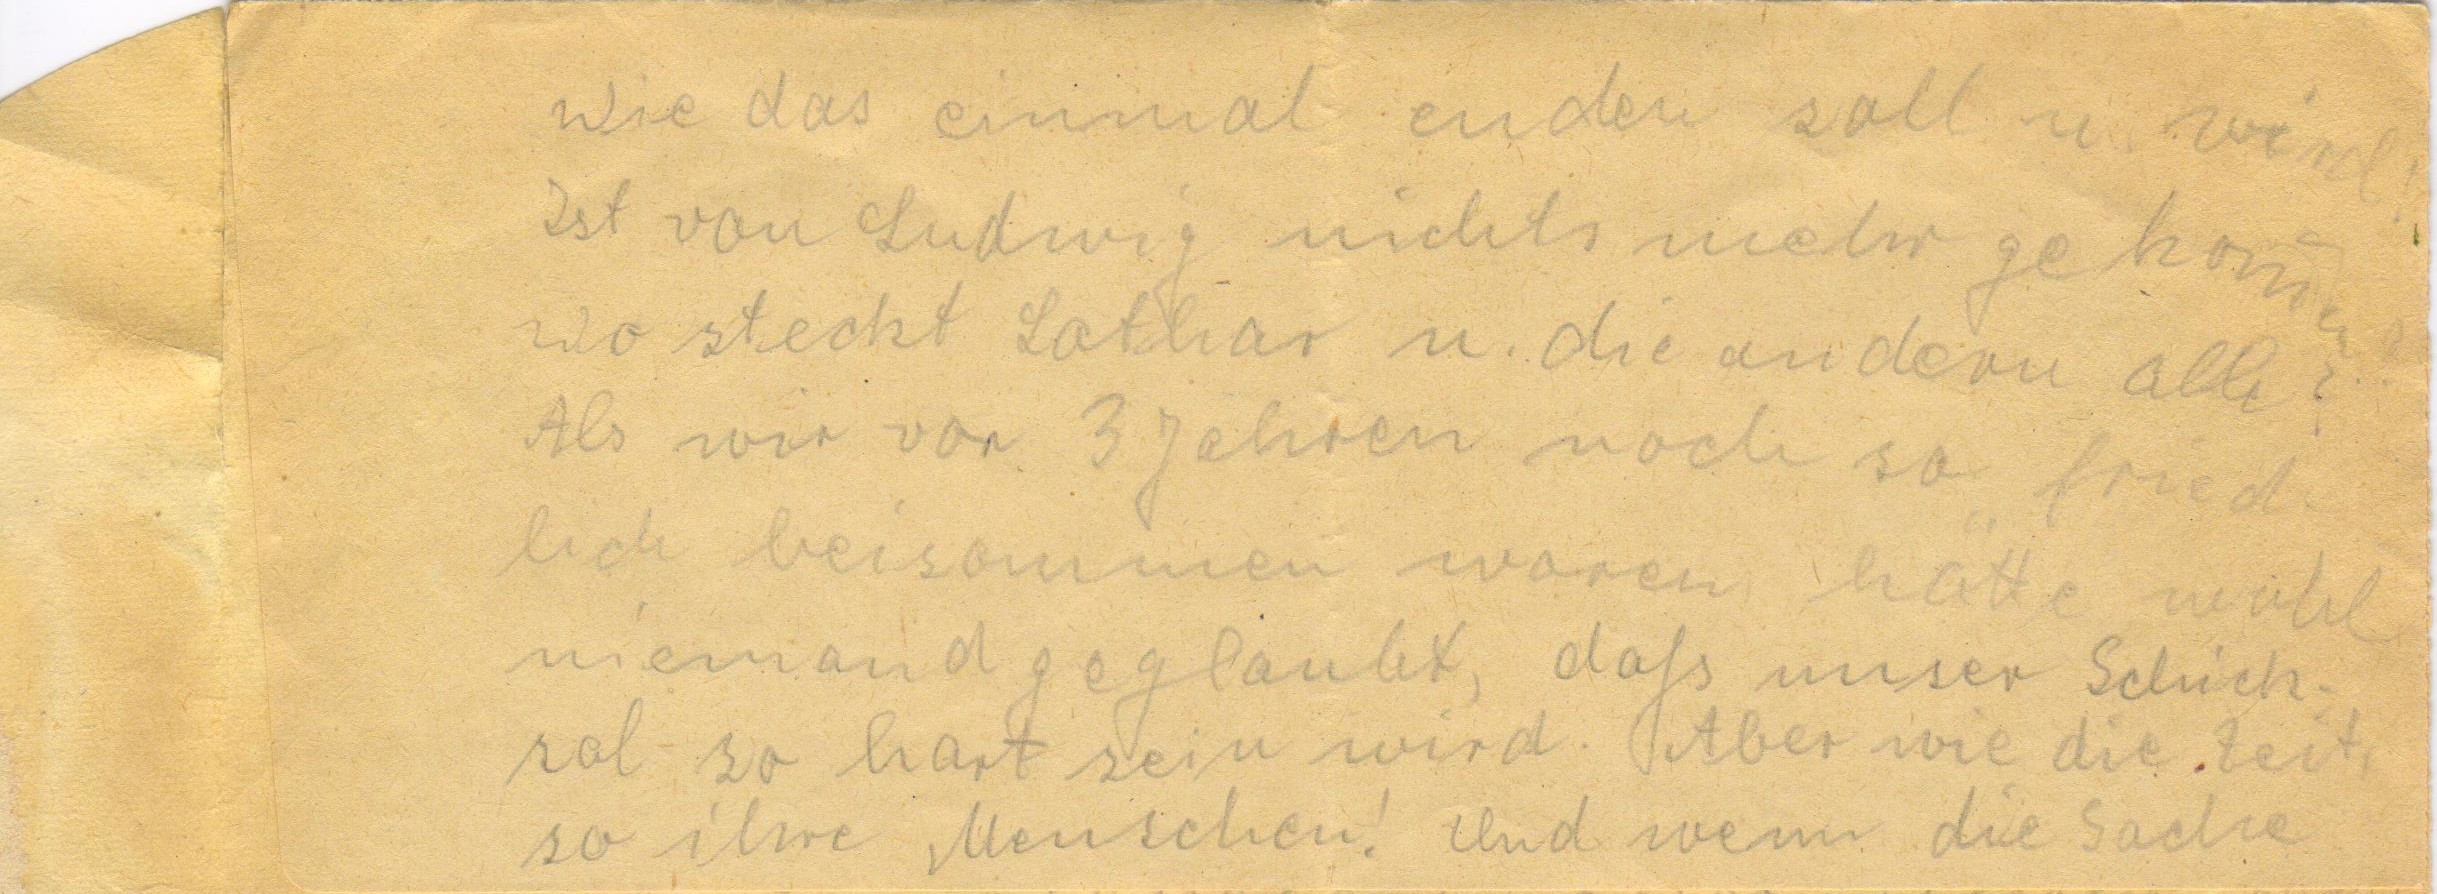 Wie das einmal enden soll u. wird!
Ist von Ludwig nichts mehr gekom̄en?
Wo steckt Lothar u. die andern alle?
Als wir vor 3 Jahren noch so fried-
lich beisammen waren, hätte wohl
niemand geglaubt, daſs unser Schick-
sal so hart sein wird. Aber wie die Zeit,
so ihre Menschen! Und wenn die Sache